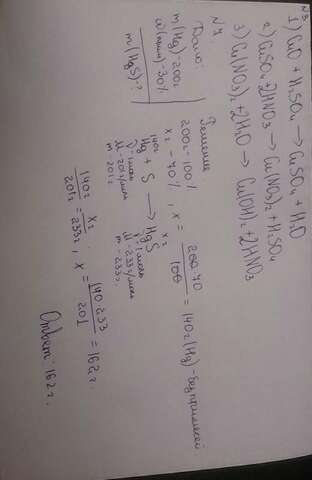 N3
1) CuO + H₂SO₄ → CuSO₄ + H₂O
2) CuSO₄ + 2HNO₃ → Cu(NO₃)₂ + H₂SO₄
3) Cu(NO₃)₂ + 2H₂O → Cu(OH)₂ + 2HNO₃
N4.
Дано:
m(Hg) = 200г
w(прим) = 30%
m(HgS) - ?
Решение
200г - 100%
x г - 70%, x = 200·70/100 = 140г (Hg) - без примесей
140г x г
Hg + S → HgS
ν = 1 моль ν = 1 моль
M = 201г/моль M = 233г/моль
m = 201г m = 233г
140г/201г = x г/233г, x = 140·233/201 = 162г.
Ответ: 162г.